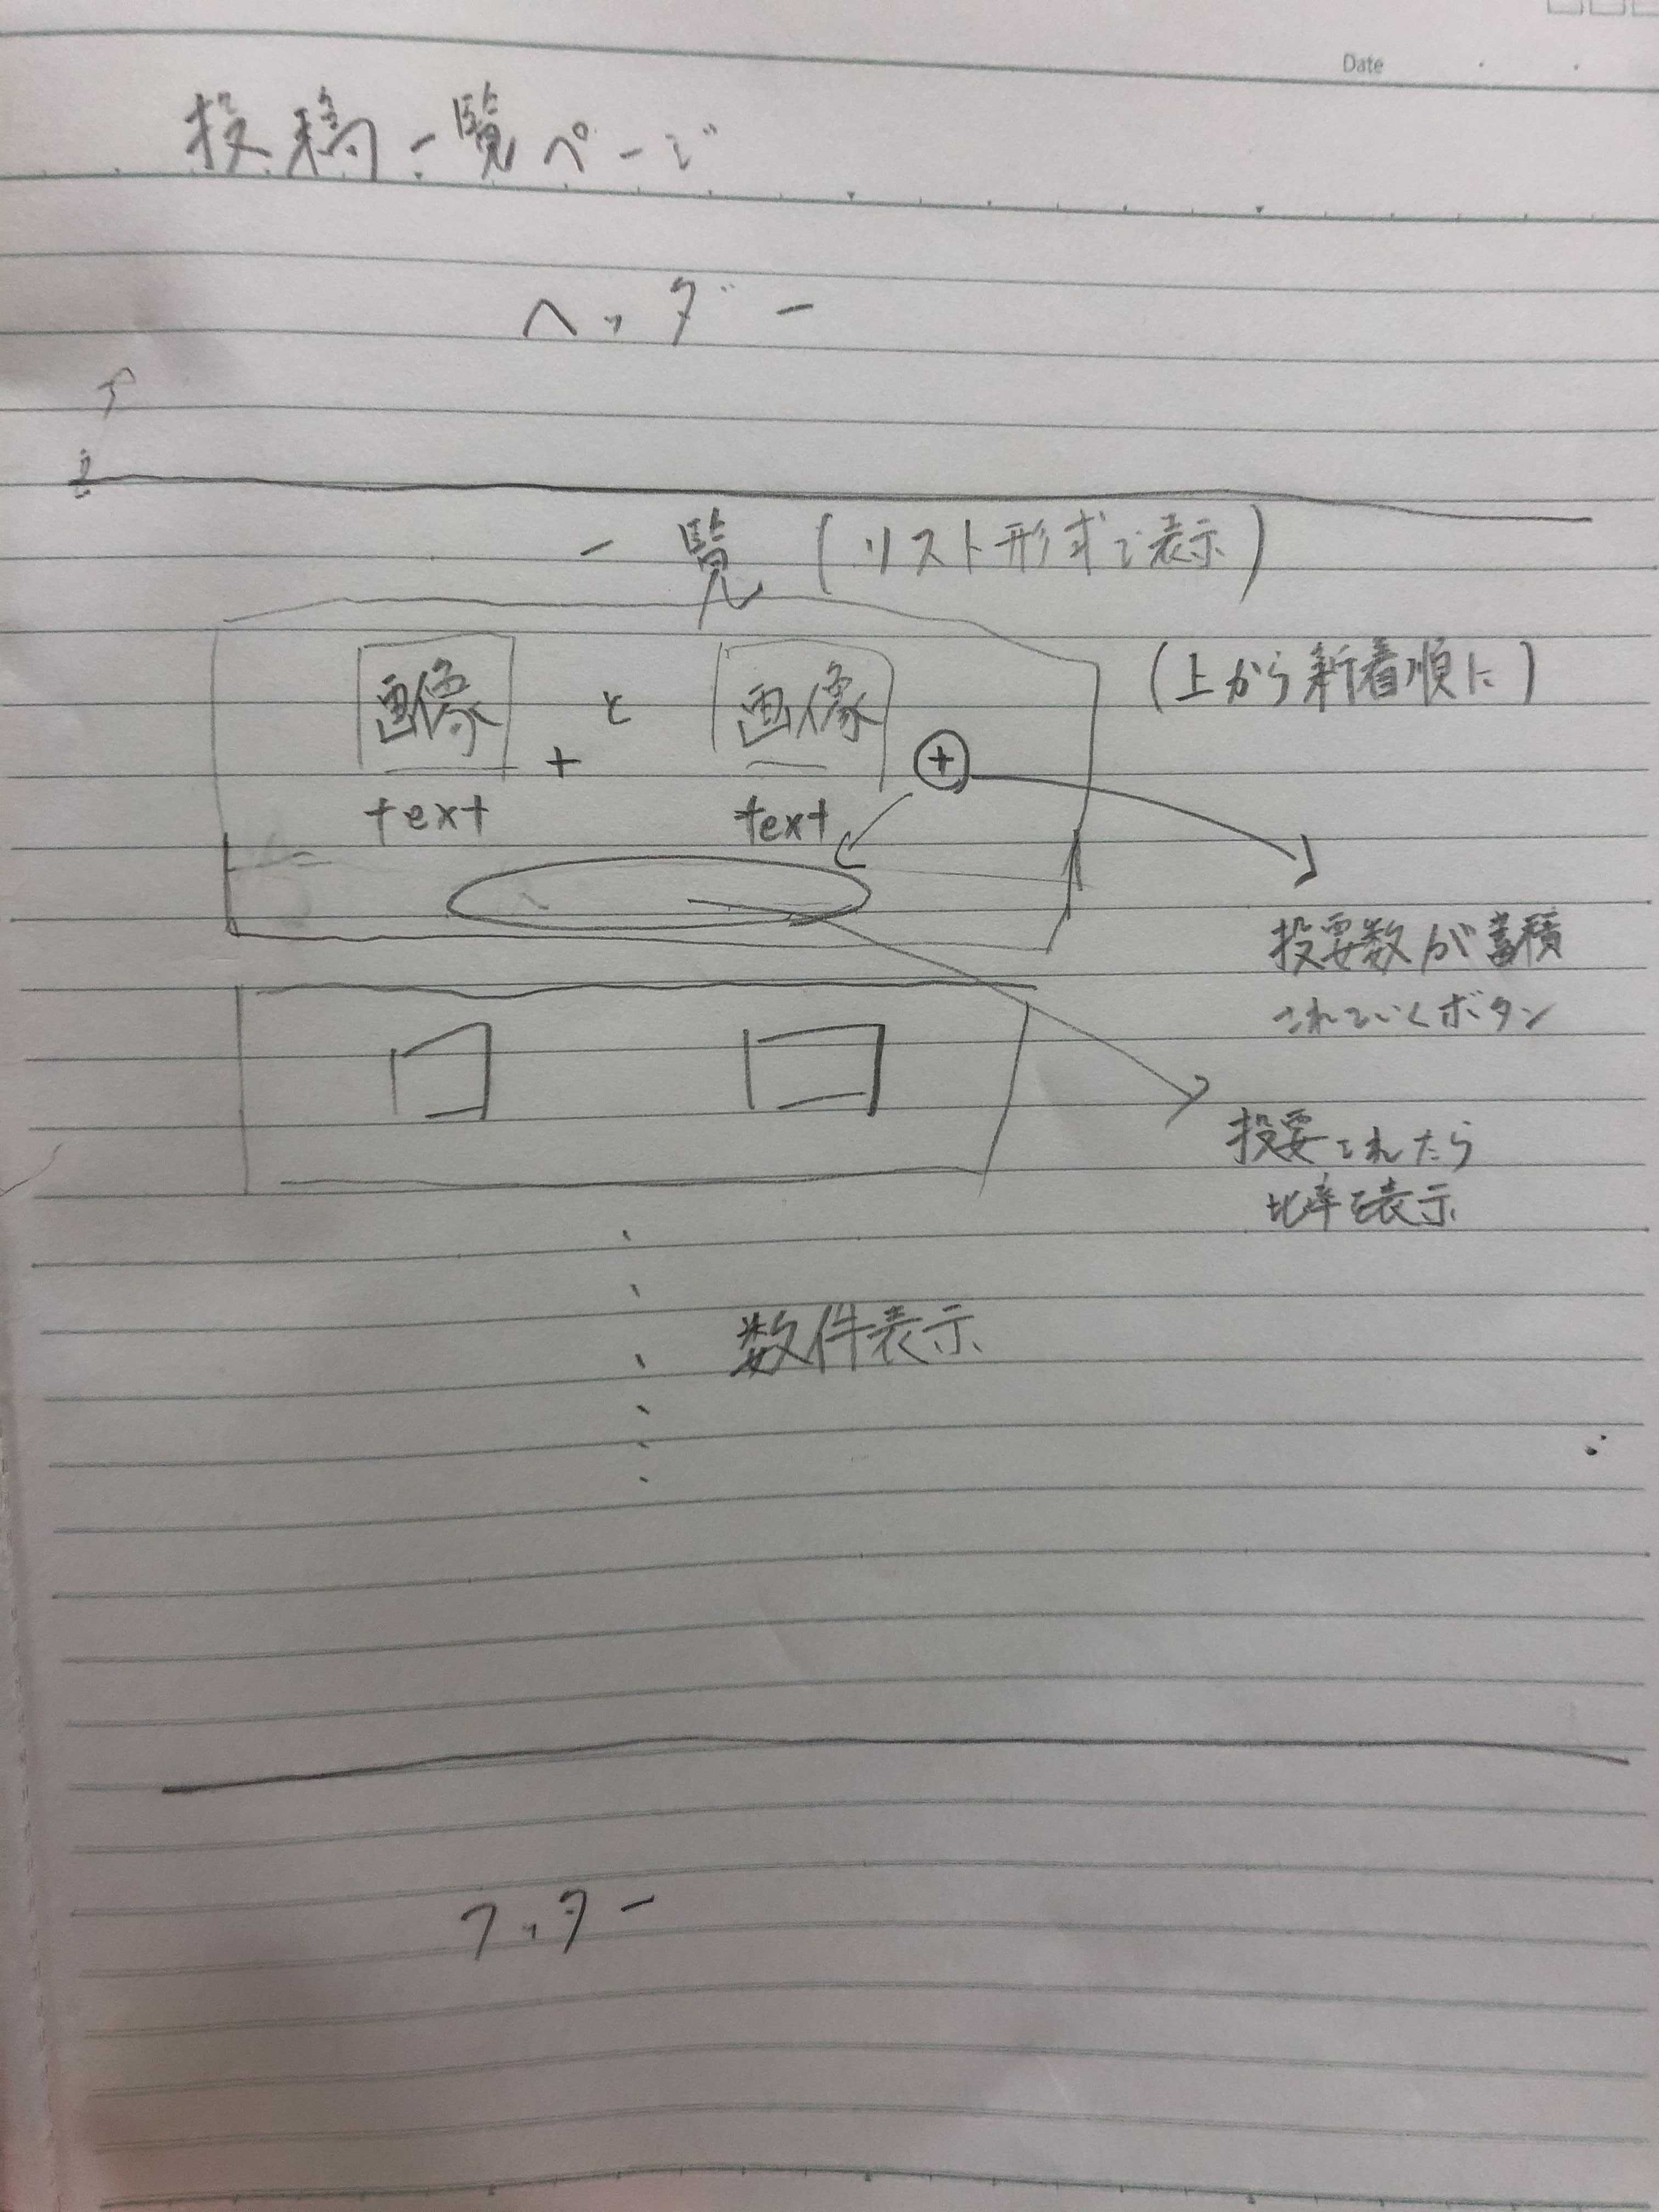 Date
投稿一覧ページ
ヘッダー
一覧 (リスト形式で表示)
(上から新着順に)
画像 と 画像
+ +
text text
投要数が蓄積
されていくボタン
投要されたら
比率を表示
数件表示
フッター